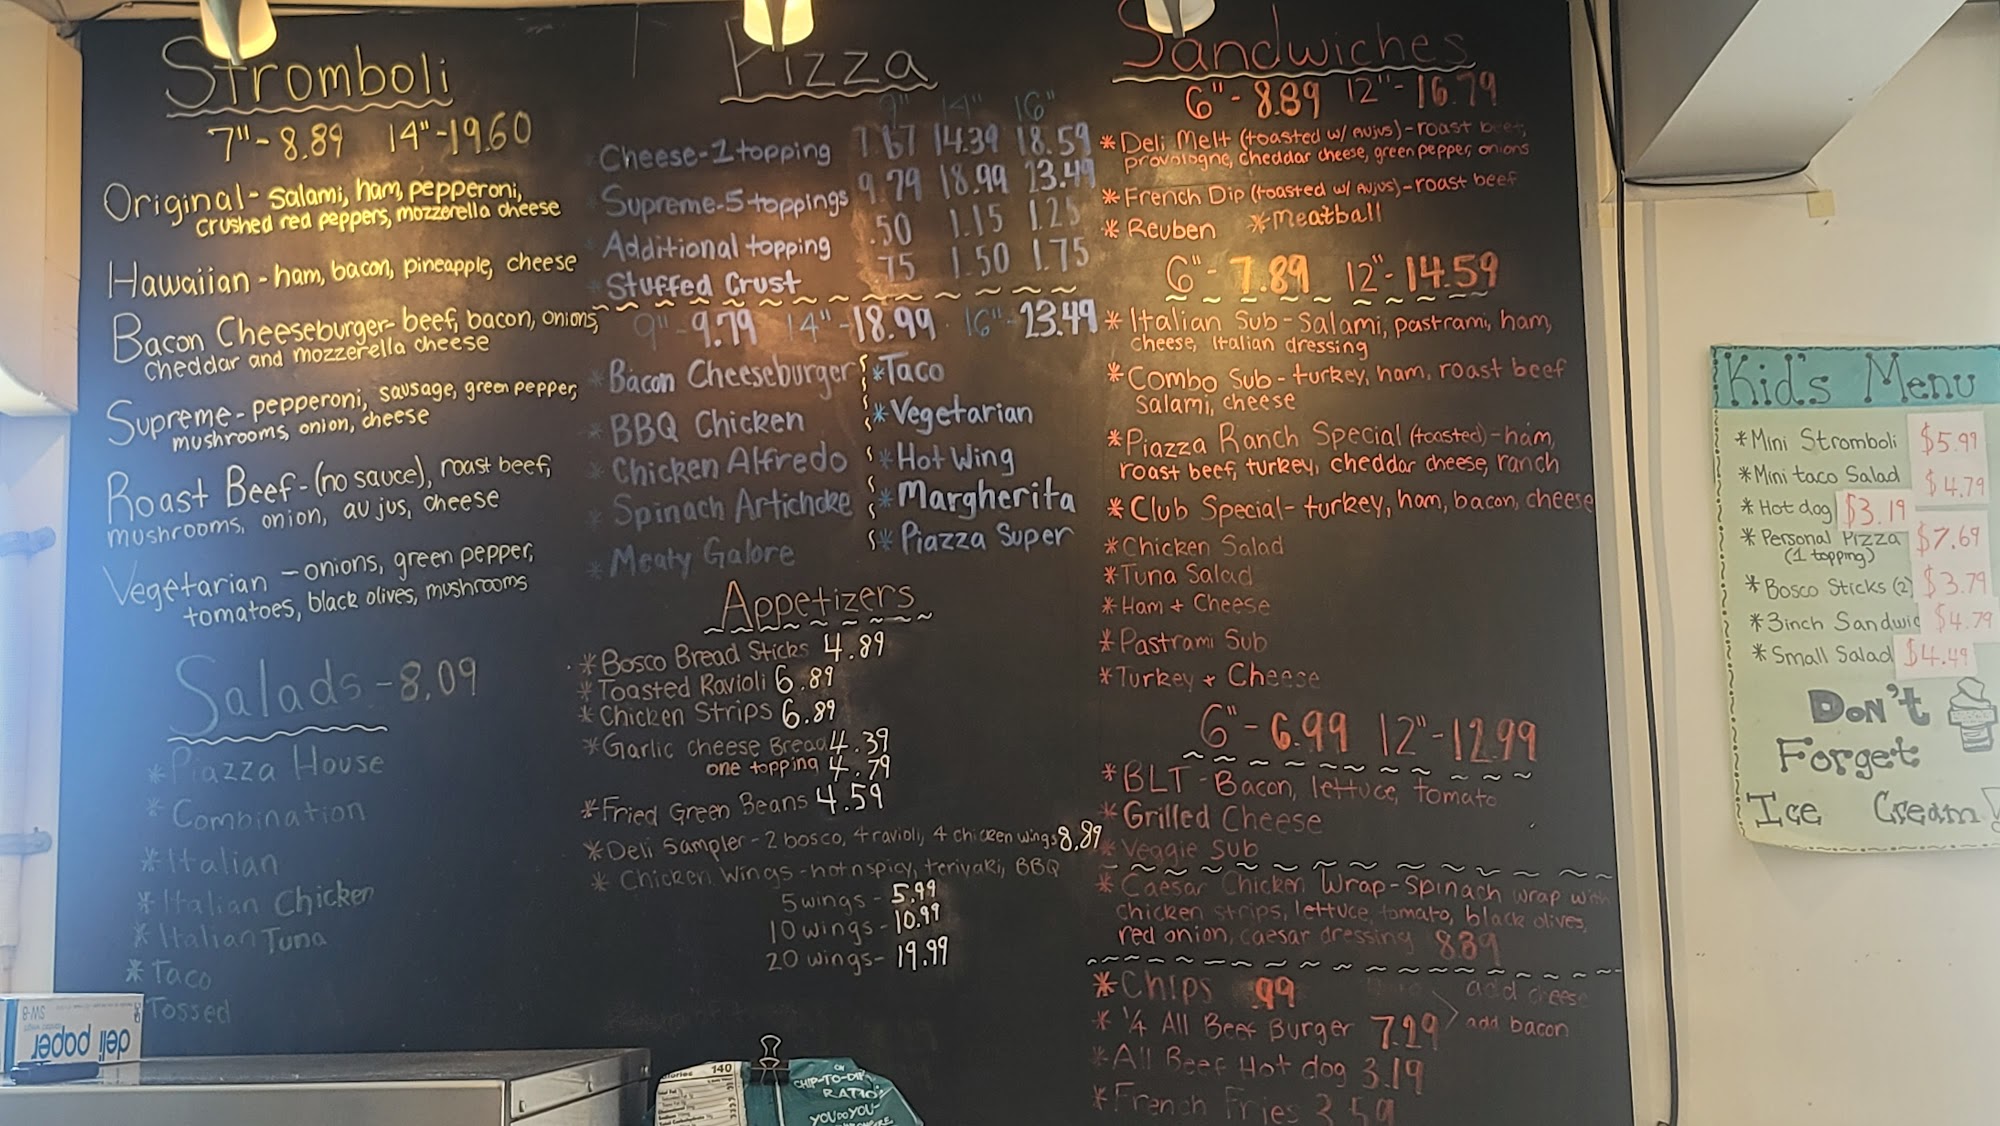 Stromboli
7"-8.89 14"-19.60
Original - salami, ham, pepperoni,
crushed red peppers, mozzerella cheese
Hawaiian - ham, bacon, pineapple, cheese
Bacon Cheeseburger- beef, bacon, onions,
cheddar and mozzerella cheese
Supreme - pepperoni, sausage, green pepper,
mushrooms, onion, cheese
Roast Beef - (no sauce), roast beef,
mushrooms, onion, au jus, cheese
Vegetarian - onions, green pepper,
tomatoes, black olives, mushrooms
Salads - 8.09
*Piazza House
*Combination
*Italian
*Italian Chicken
*Italian Tuna
*Taco
Tossed
deli paper
SW-8
Pizza
9" 14" 16"
Cheese-1 topping 7.67 14.39 18.59
Supreme-5 toppings 9.79 18.99 23.49
Additional topping .50 1.15 1.25
Stuffed Crust .75 1.50 1.75
9"-9.79 14"-18.99 16"-23.49
*Bacon Cheeseburger *Taco
*BBQ Chicken *Vegetarian
*Chicken Alfredo *Hot Wing
*Spinach Artichoke *Margherita
*Meaty Galore *Piazza Super
Appetizers
*Bosco Bread Sticks 4.89
*Toasted Ravioli 6.89
*Chicken Strips 6.89
*Garlic cheese Bread 4.39
one topping 4.79
*Fried Green Beans 4.59
*Deli Sampler - 2 bosco, 4 ravioli, 4 chicken wings 8.89
*Chicken Wings - hot n spicy, teriyaki, BBQ
5 wings - 5.99
10 wings - 10.99
20 wings - 19.99
140
CHIP-TO-DIP
RATIO:
YOU DO YOU
Sandwiches
6"-8.89 12"-16.79
*Deli Melt (toasted w/ Aujus) - roast beef,
provologne, cheddar cheese, green pepper, onions
*French Dip (toasted w/ Aujus) - roast beef
*Reuben *Meatball
6"-7.89 12"-14.59
*Italian Sub - Salami, pastrami, ham,
cheese, Italian dressing
*Combo Sub - turkey, ham, roast beef
Salami, cheese
*Piazza Ranch Special (toasted) - ham,
roast beef, turkey, cheddar cheese, ranch
*Club Special - turkey, ham, bacon, cheese
*Chicken Salad
*Tuna Salad
*Ham + Cheese
*Pastrami Sub
*Turkey + Cheese
6"-6.99 12"-12.99
*BLT - Bacon, lettuce, tomato
*Grilled Cheese
*Veggie Sub
*Caesar Chicken Wrap - Spinach wrap with
chicken strips, lettuce, tomato, black olives,
red onion, caesar dressing 8.89
*Chips .99 add cheese
*1/4 All Beef Burger 7.29 add bacon
*All Beef Hot dog 3.19
*French Fries 3.59
Kid's Menu
*Mini Stromboli $5.99
*Mini taco Salad $4.79
*Hot dog $3.19
*Personal Pizza $7.69
(1 topping)
*Bosco Sticks (2) $3.79
*3inch Sandwic $4.79
*Small Salad $4.49
Don't
Forget
Ice Cream!